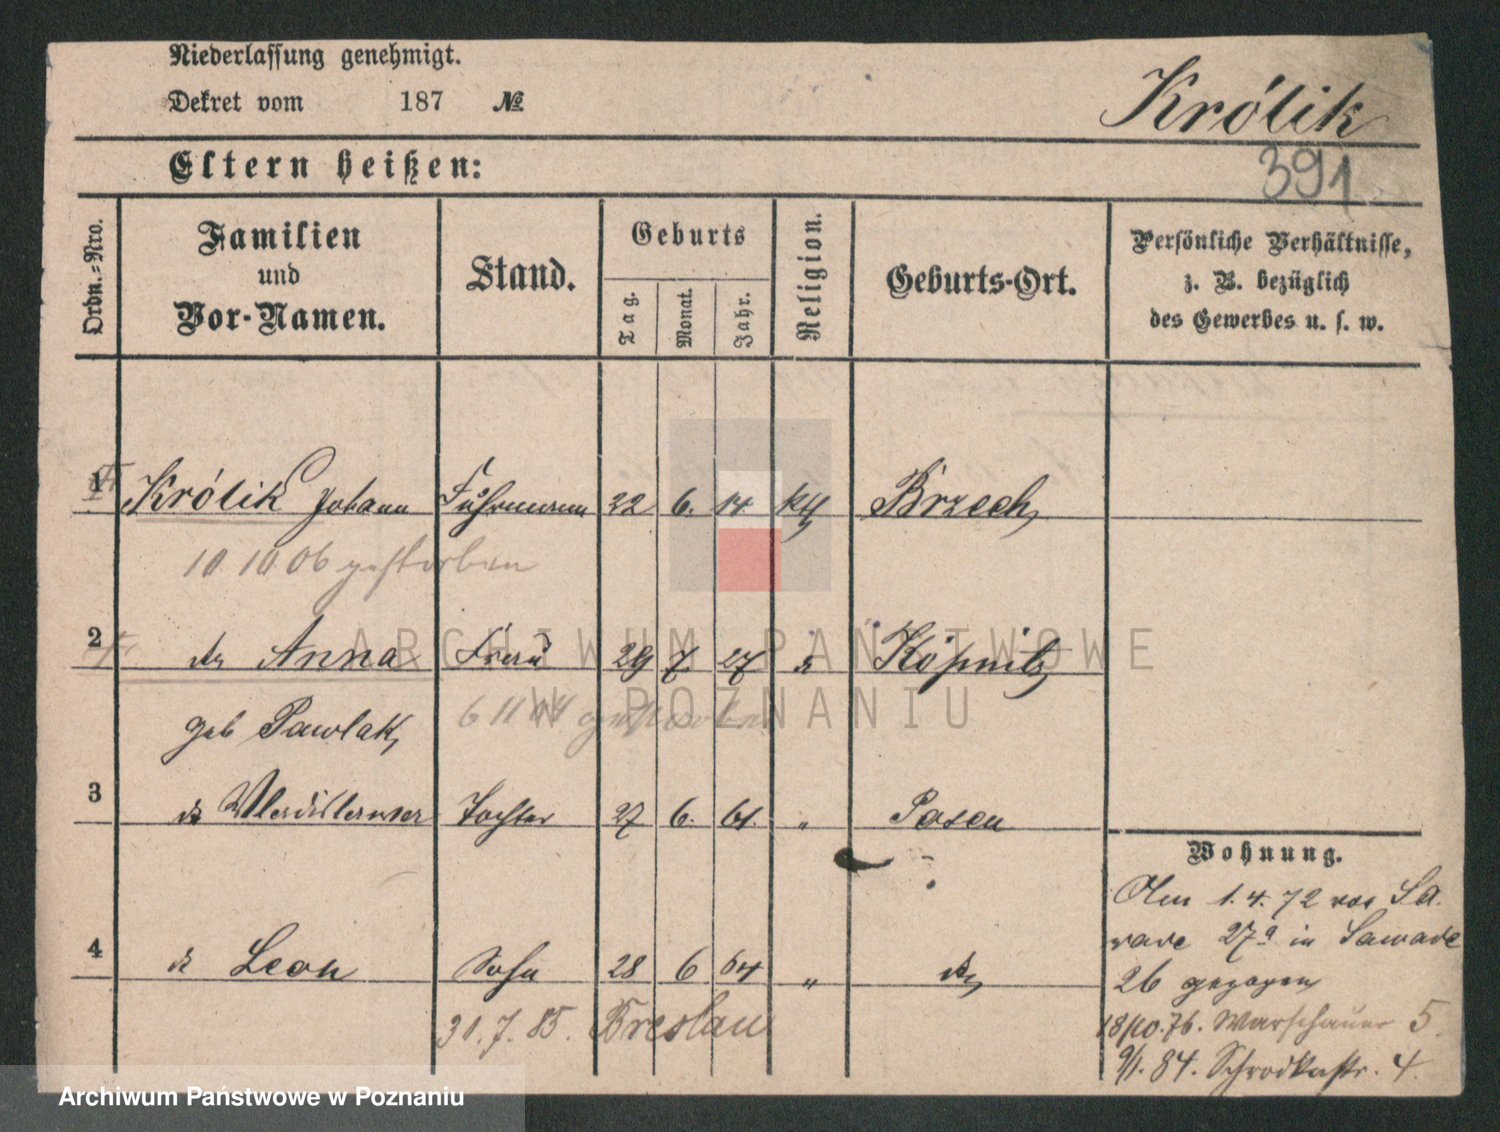 Niederlassung genehmigt.
Dekret vom 187 №
Królik
Eltern heißen:
391
Ordn.=Nro.
Familien
und
Vor-Namen.
Stand.
Geburts
Tag.
Monat.
Jahr.
Religion.
Geburts-Ort.
Persönliche Verhältnisse,
z. B. bezüglich
des Gewerbes u. s. w.
1 Królik Johann Fuhrmann 22 6. 14. kth Brzech
10 10 06 gestorben
2 do Anna Frau 29 7. 27 Köpnitz
geb Pawlak
6 11 gestorben
3 Wladislawa Tochter 27 6. 61. " Posen
Wohnung.
4 Leon Sohn 28 6 64 " do
31.7.85. Breslau
1. 4. 72 von Sa-
wade 27a in Sawade
26 gezogen
18/10.76. Warschauer 5.
9/1. 84. Schrodkastr. 4.
ARCHIWUM PAŃSTWOWE
W POZNANIU
Archiwum Państwowe w Poznaniu